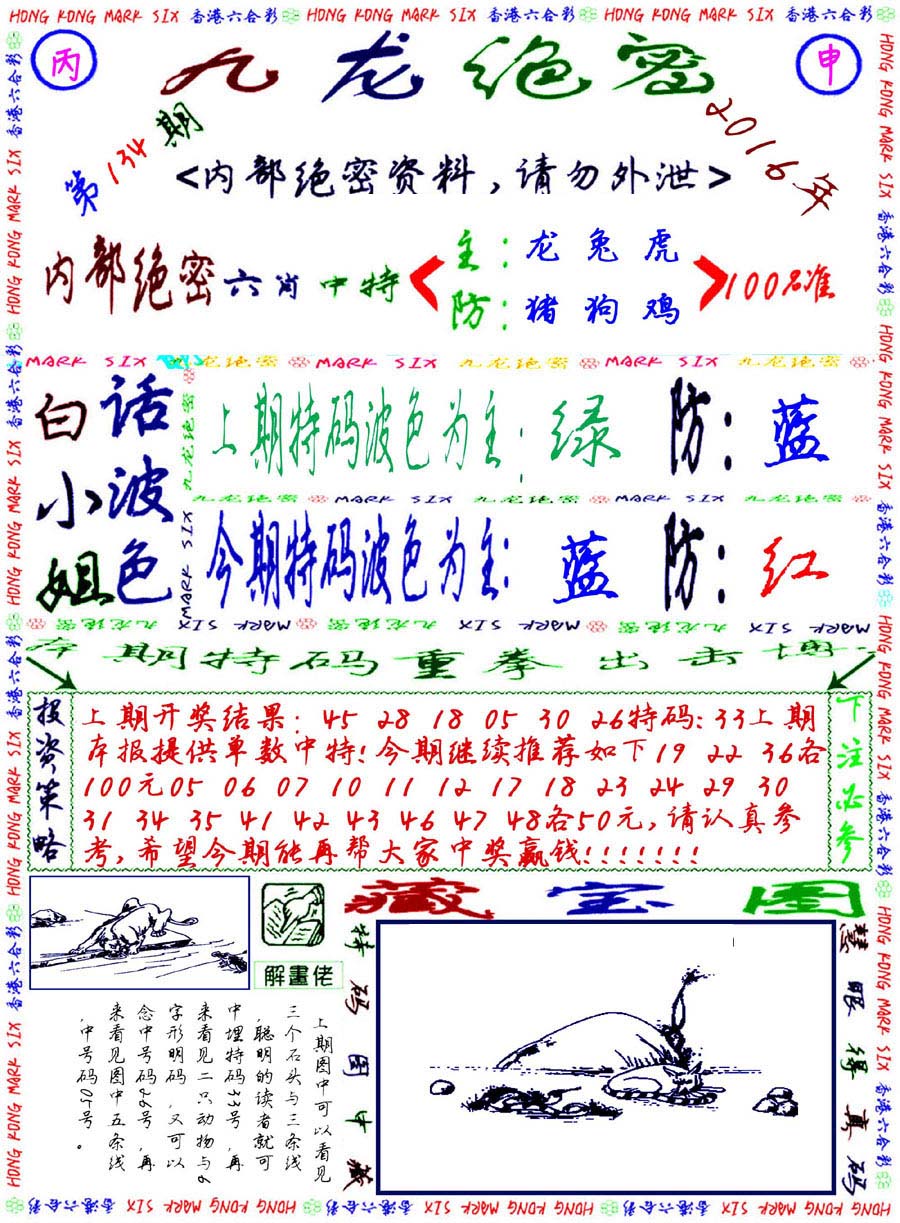 HONG KONG MARK SIX 香港六合彩 HONG KONG MARK SIX 香港六合彩 HONG KONG MARK SIX 香港六合彩
丙 九龙绝密 申
第134期 2016年
<内部绝密资料,请勿外泄>
内部绝密六肖中特
主:龙 兔 虎
防:猪 狗 鸡
100%准
MARK SIX 九龙绝密 MARK SIX 九龙绝密 MARK SIX 九龙绝密
白小姐
话波色
上期特码波色为主:绿 防:蓝
九龙绝密 MARK SIX 九龙绝密 MARK SIX 九龙绝密
今期特码波色为主:蓝 防:红
九龙绝密 MARK SIX 九龙绝密 MARK SIX 九龙绝密 MARK SIX
本期特码重拳出击博
投资策略
上期开奖结果: 45 28 18 05 30 26特码:33上期
本报提供单数中特!今期继续推荐如下19 22 36各
100元05 06 07 10 11 12 17 18 23 24 29 30
31 34 35 41 42 43 46 47 48各50元,请认真参
考,希望今期能再帮大家中奖赢钱!!!!!!!
下注必参
藏宝图
解畫佬
特码图中藏
慧眼得真码
上期图中可以看见
三个石头与三条线
,聪明的读者就可
中埋特码33号,再
来看见二只动物与6
字形明码,又可以
念中号码26号,再
来看见图中五条线
,中号码05号。
HONG KONG MARK SIX 香港六合彩 HONG KONG MARK SIX 香港六合彩 HONG KONG MARK SIX 香港六合彩